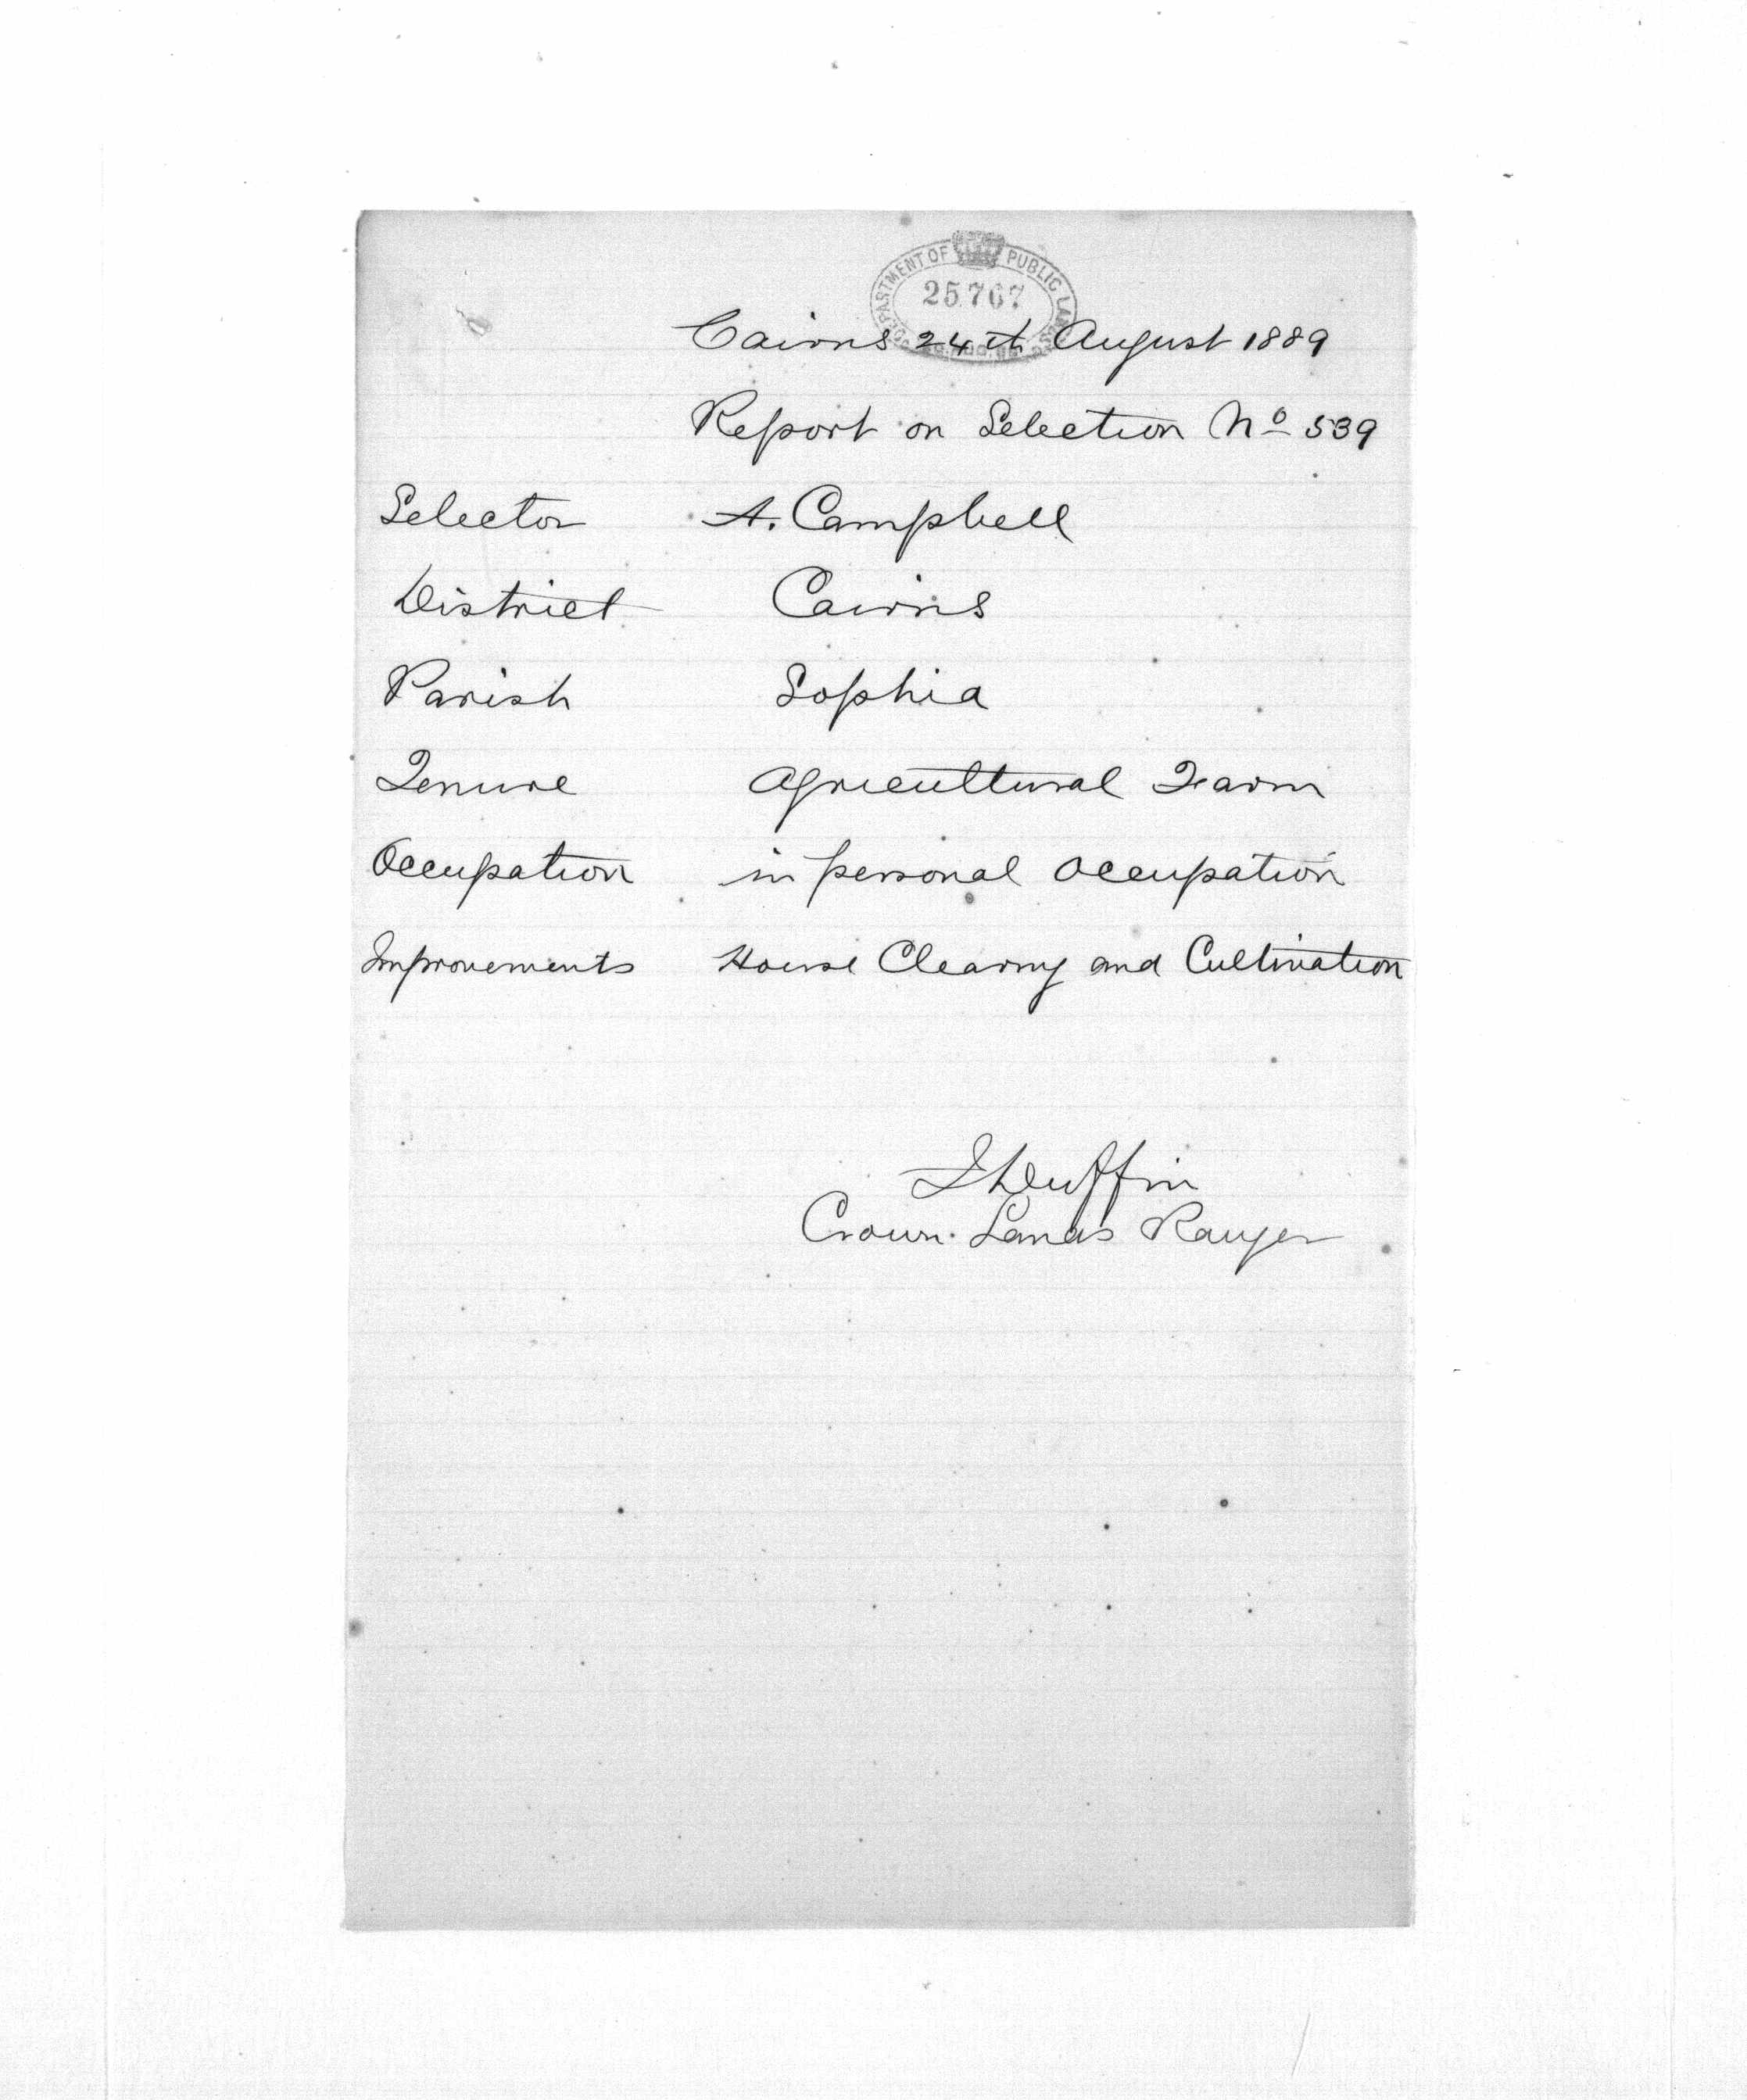 DEPARTMENT OF PUBLIC LANDS
25767
Cairns 24th August 1889
Report on Selection No 539
Selector A. Campbell
District Cairns
Parish Sophia
Tenure Agricultural Farm
Occupation in personal occupation
Improvements House Clearing and Cultivation
Duffin
Crown Lands Ranger